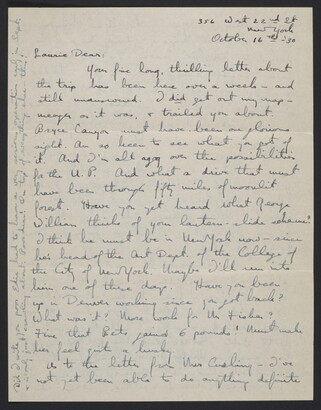 356 West 22nd St
New York
October 16th '30
Laurie Dear:
Your fine long, thrilling letter about
the trip has been here over a week — and
still unanswered. I did get out my map —
meager as it was, & trailed you about
Bryce Canyon must have been a glorious
sight. Am so keen to see what you got of
it. And I'm all agog over the possibilities
for the U.P. And what a drive that must
have been through fifty miles of moonlit
forest. Have you yet heard what George
William thinks of your lantern-slide scheme?
I think he must be in New York now — since
he's head of the Art Dept. of the College of
the City of New York. Maybe I'll run into
him one of these days. Have you been
up in Denver working since you got back?
What was it? More work for Mr Fisher?
Fine that Bets gained 6 pounds! Must make
her feel quite
As to the letter from Mrs Cushing — I've
not yet been able to do anything definite
Did I write you poor Edna had to have a operation early in Sept